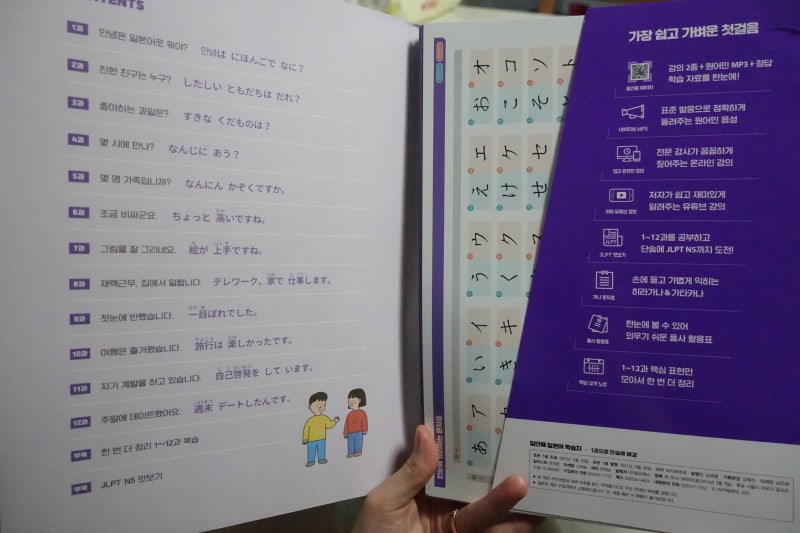 ENTS
1과 안녕은 일본어로 뭐야? 안녕は にほんごで なに？
2과 친한 친구는 누구? したしい ともだちは だれ？
3과 좋아하는 과일은? すきな くだものは？
4과 몇 시에 만나? なんじに あう？
5과 몇 명 가족입니까? なんにん かぞくですか。
6과 조금 비싸군요. ちょっと 高いですね。
7과 그림을 잘 그리네요. 絵が 上手ですね。
8과 재택근무, 집에서 일합니다. テレワーク、家で 仕事します。
9과 첫눈에 반했습니다. 一目ぼれでした。
10과 여행은 즐거웠습니다. 旅行は 楽しかったです。
11과 자기 계발을 하고 있습니다. 自己啓発を して います。
12과 주말에 데이트했어요. 週末 デートしたんです。
부록 한 번 더 정리 1~12과 복습
부록 JLPT N5 맛보기
オ コ ソ ト
お こ そ
エ ケ セ
え け せ
ウ ク
う く
イ キ
い き
ア
あ
가장 쉽고 가벼운 첫걸음
강의 2종+원어민 MP3+정답
학습 자료를 한눈에!
표준 발음으로 정확하게
들려주는 원어민 음성
네이티브 MP3
전문 강사가 꼼꼼하게
짚어주는 온라인 강의
저자가 쉽고 재미있게
알려주는 유튜브 강의
저자 유튜브 강의
1~12과를 공부하고
단숨에 JLPT N5까지 도전!
JLPT
JLPT 맛보기
손에 들고 가볍게 익히는
히라가나&가타카나
가나 문자표
한눈에 볼 수 있어
외우기 쉬운 품사 활용표
품사 활용표
1~12과 핵심 표현만
모아서 한 번 더 정리
핵심 요약 노트
일단해 일본어 학습지 - 1권으로 단숨에 해결